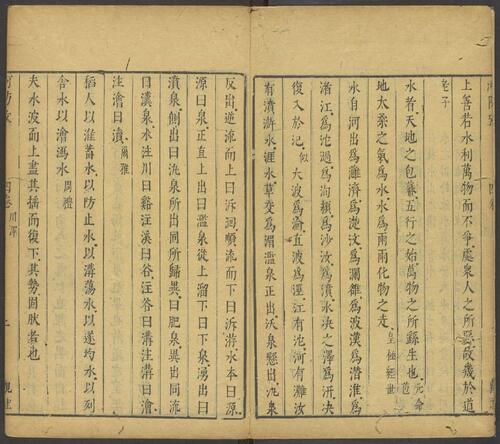 上善若水利萬物而不爭處衆人之所惡故幾於道
老子
水者天地之包幕五行之始萬物之所繇生也元命苞
地太柔之氣爲水水爲雨雨化物之走皇極經世
水自河出爲灉濟爲濋汶爲瀾雒爲波漢爲潛淮爲
滸江爲沱過爲洵潁爲沙汝爲濆水決之澤爲汧決
復入於汜似大波爲瀾直波爲涇江有沱河有灉汝
有濆滸水涯水草交爲湄濫泉正出沃泉懸出氿泉
反出逆流而上曰泝洄順流而下曰泝游水本曰源
源曰泉正直上出曰濫泉從上溜下曰下泉湧出曰
濆泉側出曰氿泉所出同所歸異曰肥泉異出同流
曰瀵泉水注川曰谿注谿曰谷注谷曰溝注溝曰澮
注澮曰瀆爾雅
稻人以瀦蓄水以防止水以溝蕩水以遂均水以列
舍水以澮瀉水周禮
夫水波而上盡其搖而復下其勢固狀者也
四卷川澤